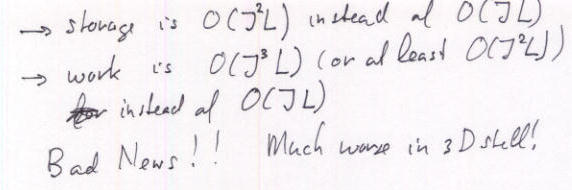 → storage is O(J²L) instead of O(JL)
→ work is O(J³L) (or at least O(J²L))
instead of O(JL)
Bad News!! Much worse in 3D still!